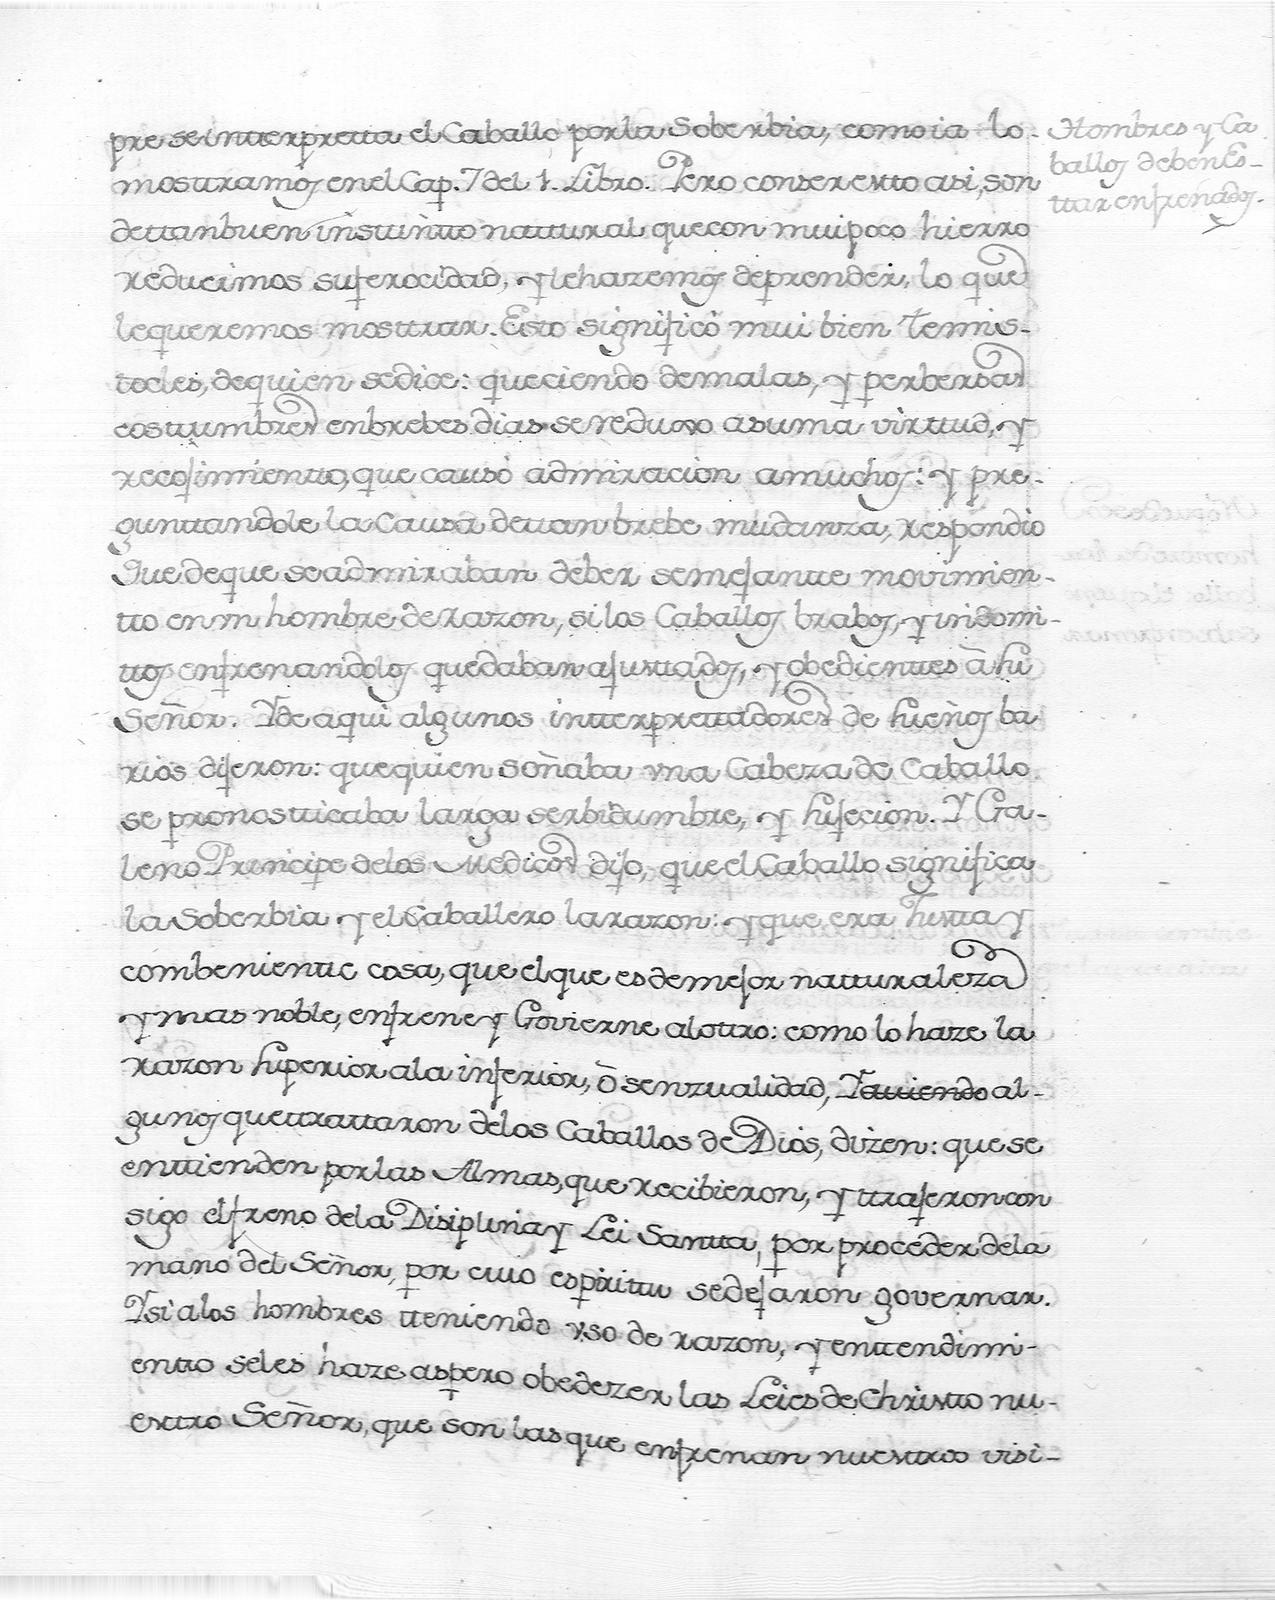 pre se intterpretta el Caballo por la Soberbia, como ia lo-
mosttramos en el Cap. 7 del 1. Libro. Pero con ser estto asi, son
de ttan buen insttintto nattural que con mui poco hierro
reducimos su ferocidad, y le hazemos deprender, lo que
le queremos mosttrar. Esto significó mui bien Temis-
tocles, de quien se dice: que ciendo de malas, y perbersas
costtumbres en brebes dias se reduxo a suma virttud, y
recojimientto, que causó admiracion a muchos: y pre-
gunttandole la Causa de ttan brebe mudanza, respondio
Que de que se admiraban deber semejantte movimien-
tto en un hombre de razon, si los Caballos brabos, y indomi-
ttos enfrenandolos quedaban ajusttados, y obedienttes à su
Señor. Y de aqui algunos intterprettadores de sueños ba
rios dijeron: que quien soñaba vna Cabeza de Caballo
se pronostticaba larga serbidumbre, y sujecion. Y Ga-
leno Principe de los Medicos dijo, que el Caballo significa
la Soberbia y el Caballero la razon: y que era Justta y
combenientte cosa, que el que es de mejor natturaleza
y mas noble, enfrene y Govierne al ottro: como lo haze la
razon superior a la inferior, ò senzualidad, Y auiendo al-
gunos que ttrattaron de los Caballos de Dios, dizen: que se
enttienden por las Almas, que recibieron, y ttrajeron con
sigo el freno de la Disiplina y Lei Santta, por proceder de la
mano del Señor, por cuio espirittu se dejaron governar.
Y si a los hombres tteniendo vso de razon, y enttendimi-
entto se les haze aspero obedezer las Leies de Christto nu-
esttro Señor, que son las que enfrenan nuesttros visi-
Hombres y Ca
ballos deben Es-
ttar enfrenados.